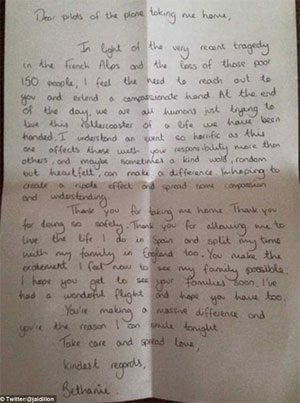 Dear pilots of the plane taking me home,
In light of the very recent tragedy
in the French Alps and the loss of those poor
150 people, I feel the need to reach out to
you and extend a compassionate hand. At the end
of the day, we are all humans just trying to
live this rollercoaster of a life we have been
handed. I understand an event so horrific as this
one affects those with your responsibility more than
others, and maybe sometimes a kind word, random
but heartfelt, can make a difference. I'm hoping to
create a ripple effect and spread some compassion
and understanding.
Thank you for taking me home. Thank you
for doing so safely. Thank you for allowing me to
live the life I do in Spain and split my time
with my family in England too. You make the
excitement I feel now to see my family possible.
I hope you get to see your families soon. I've
had a wonderful flight and hope you have too.
You're making a massive difference and
you're the reason I can smile tonight.
Take care and spread love,
kindest regards,
Bethanie.
© Twitter@jaidillon